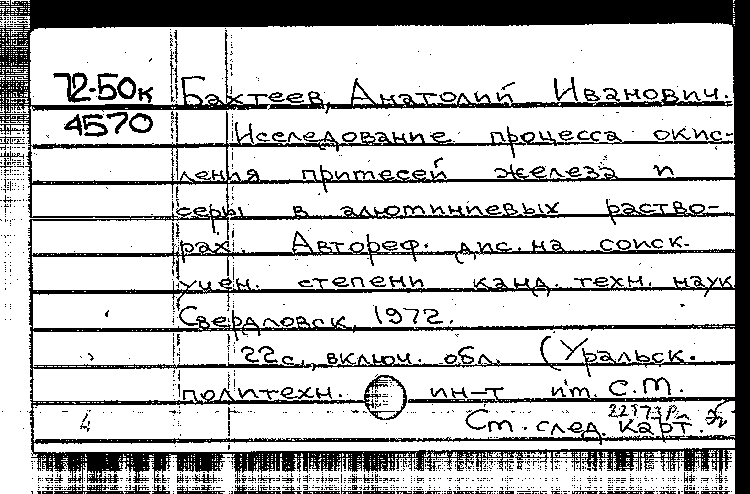 72-50к Бахтеев, Анатолий Иванович.
4570 Исследование процесса окис-
ления примесей железа и
серы в алюминиевых раство-
рах. Автореф. дис. на соиск.
учен. степени канд. техн. наук
Свердловск, 1972.
22с., включ. обл. (Уральск.
политехн. ин-т им. С.М.
4 Ст. след. карт.